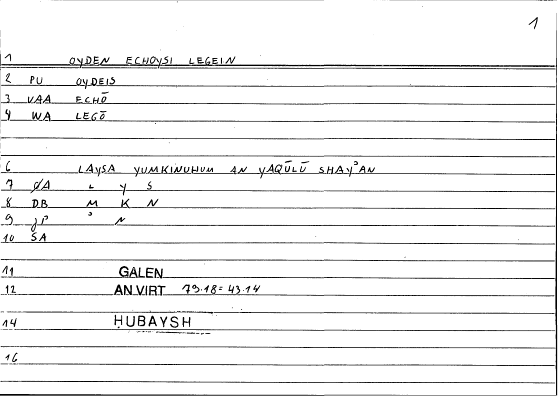 1
1 OYDEN ECHOYSI LEGEIN
2 PU OYDEIS
3 VAA ECHŌ
4 WA LEGŌ
6 LAYSA YUMKINUHUM AN YAQŪLŪ SHAYʾAN
7 L Y S
8 DB M K N
9 ʾ N
10 SA
11 GALEN
12 AN.VIRT 79.18 = 43.14
14 ḤUBAYSH
16